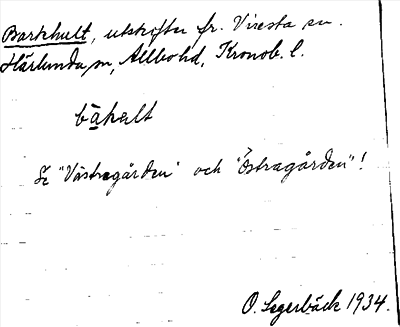 Barkhult, utskifter fr. Viresta sn.
Härlunda sn, Allbo hd, Kronob. l.
bȧkelt
Se "Västragården" och "Östragården"!
O. Segerbäck 1934.